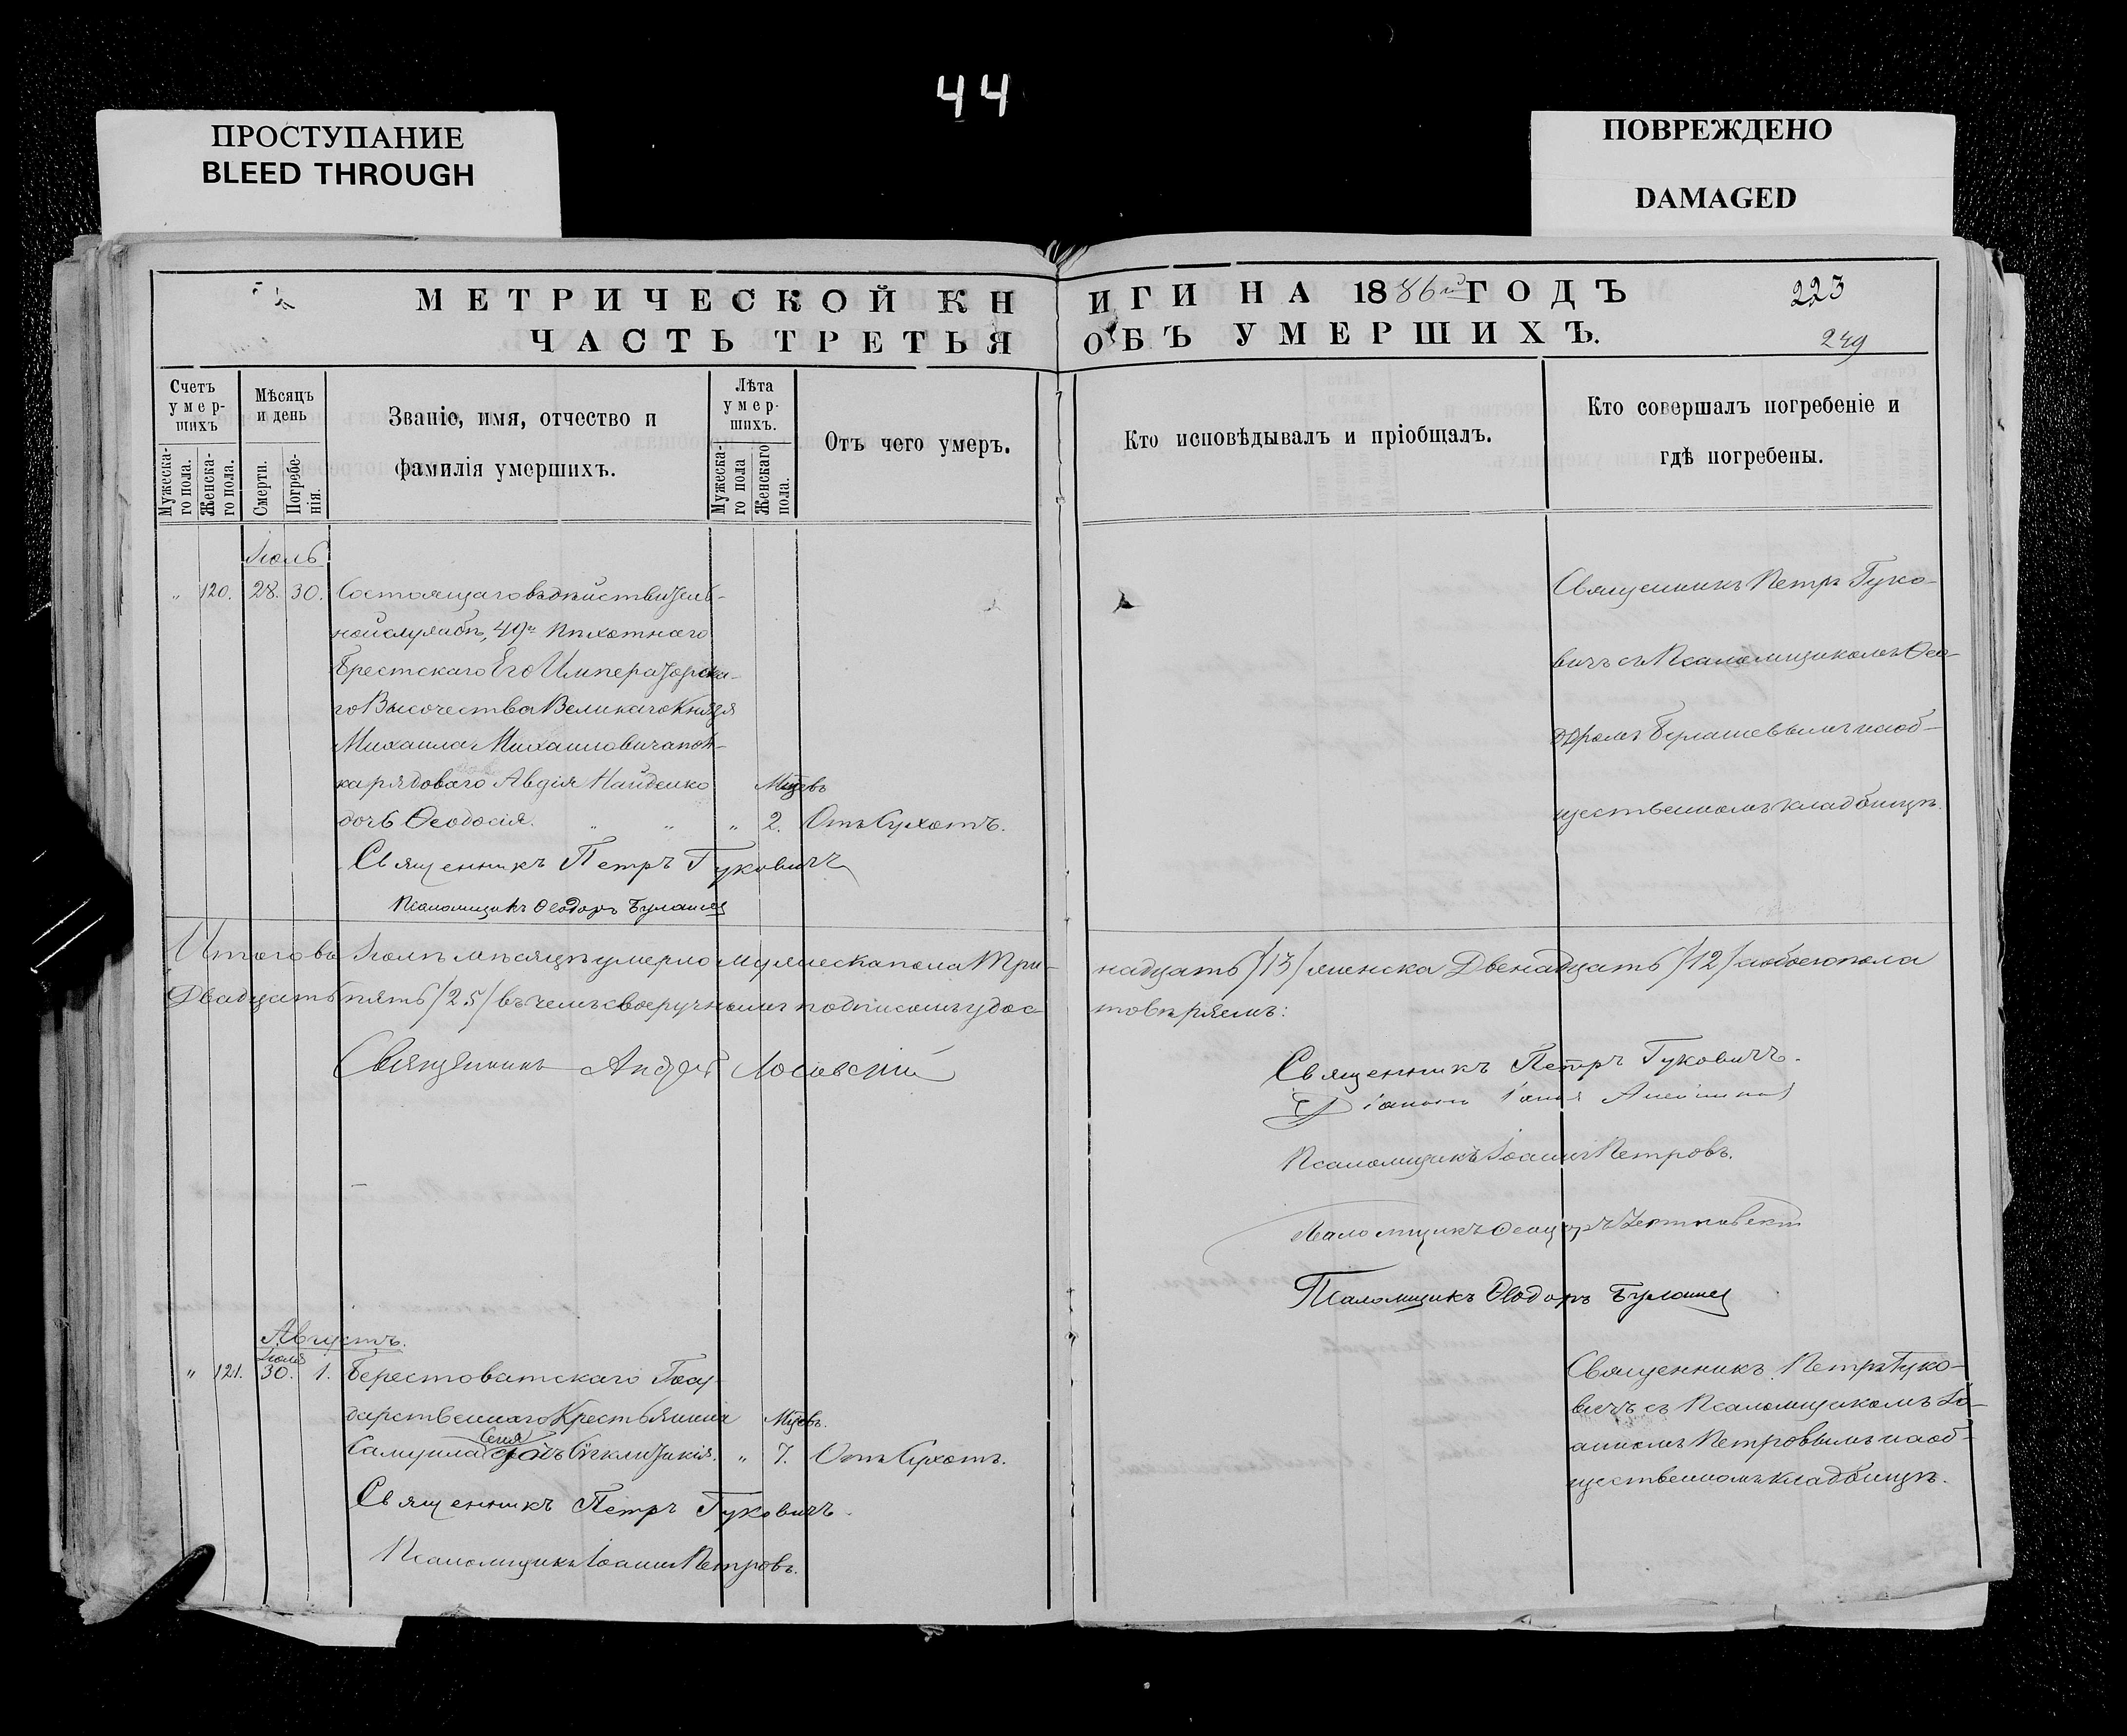 44
ПРОСТУПАНИЕ
BLEED THROUGH
ПОВРЕЖДЕНО
DAMAGED
МЕТРИЧЕСКОЙ КНИГИ НА 1886й ГОДЪ
223
ЧАСТЬ ТРЕТЬЯ ОБЪ УМЕРШИХЪ.
249
Счетъ умер-шихъ
Мужеска-го пола.
Женска-го пола.
Мѣсяцъ и день
Смерти.
Погребе-нія.
Званіе, имя, отчество и
фамилія умершихъ.
Лѣта умер-шихъ.
Мужеска-го пола
Женскаго пола.
Отъ чего умеръ.
Кто исповѣдывалъ и пріобщалъ.
Кто совершалъ погребеніе и
гдѣ погребены.
Іюль
" 120. 28. 30. Состоящаго въ дѣйствитель-
ной службѣ, 49го Пѣхотнаго
Брестскаго Его Императорска-
го Высочества Великаго Князя
Михаила Михаиловича пол-
ка рядоваго Авдія Найденко
Мцевъ
дочь Ѳеодосія. " " " 2. Отъ Сухотъ.
Священникъ Петръ Гуко-
вичъ съ Псаломщикомъ Ѳео-
доромъ Булашевымъ на об-
щественномъ кладбищѣ.
Священникъ Петръ Гуковичъ
Псаломщикъ Ѳеодоръ Булашев
Итого въ Іюлѣ мѣсяцѣ умерло мужеска пола Три-
надцать /13/ женска Двенадцать /12/ а обоего пола
Двадцать пять /25/ въ чемъ своеручнымъ подписомъ удос
товѣряемъ:
Священникъ Андрей
Священникъ Петръ Гуковичъ.
Псаломщикъ Іоаннъ Петровъ.
Псаломщикъ
Псаломщикъ Ѳеодоръ Булашев
Августъ.
Іюля
" 121. 30. 1. Берестоватскаго Госу-
дарственнаго Крестьянина
Мцевъ.
Самуила дочь " 7. Отъ Сухотъ.
Священникъ Петръ Гуко-
вичъ съ Псаломщикомъ Іо-
анномъ Петровымъ на об-
щественномъ кладбищѣ.
Священникъ Петръ Гуковичъ.
Псаломщикъ Іоаннъ Петровъ.